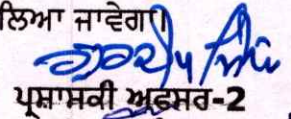 ਲਿਆ ਜਾਵੇਗਾ।
ਪ੍ਰਸ਼ਾਸਕੀ ਅਫ਼ਸਰ-2